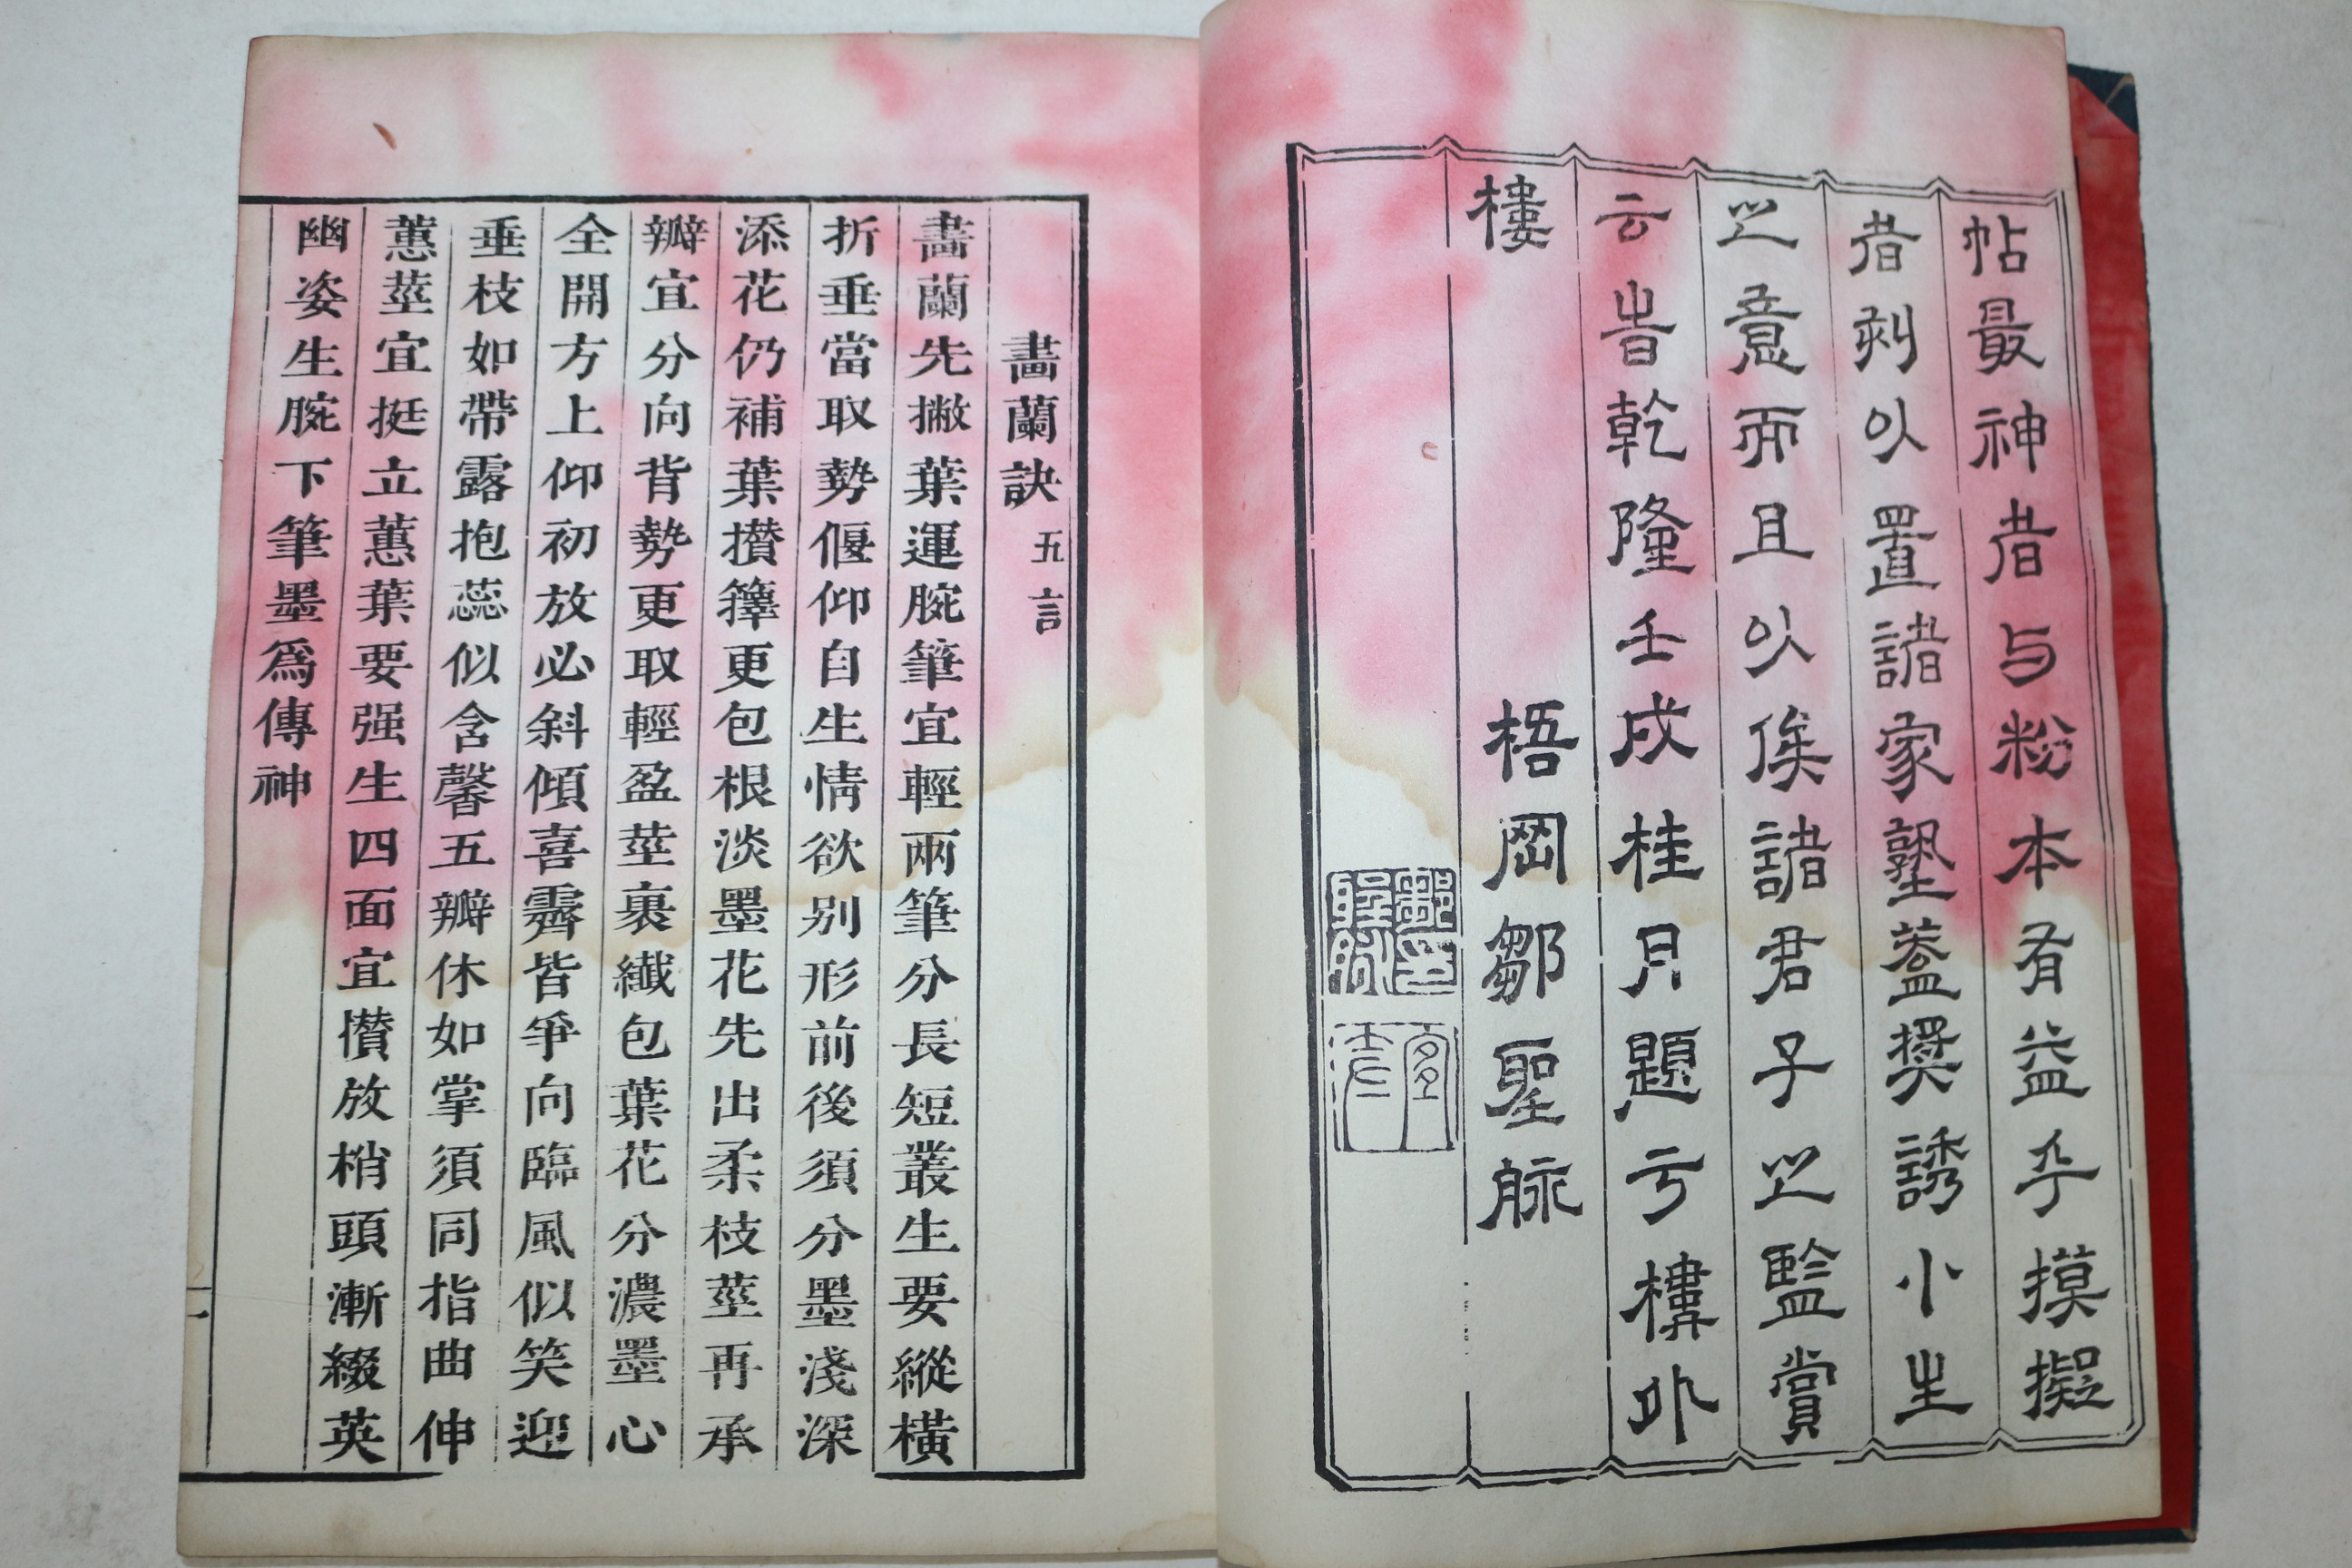 帖最神者与粉本有益乎摸擬
者剞以置諸家塾葢奨誘小生
之意而且以俟諸君子之監賞
云旹乾隆壬戌桂月題亏構外
樓
梧岡鄒聖脉
畫蘭訣 五言
畫蘭先撇葉運腕筆宜輕兩筆分長短叢生要縱橫
折垂當取勢偃仰自生情欲别形前後須分墨淺深
添花仍補葉攢籜更包根淡墨花先出柔枝莖再承
瓣宜分向背勢更取輕盈莖裹纖包葉花分濃墨心
全開方上仰初放必斜傾喜霽皆爭向臨風似笑迎
垂枝如帶露抱蕊似含馨五瓣休如掌須同指曲伸
蕙莖宜挺立蕙葉要强生四面宜攢放梢頭漸綴英
幽姿生腕下筆墨爲傳神
一